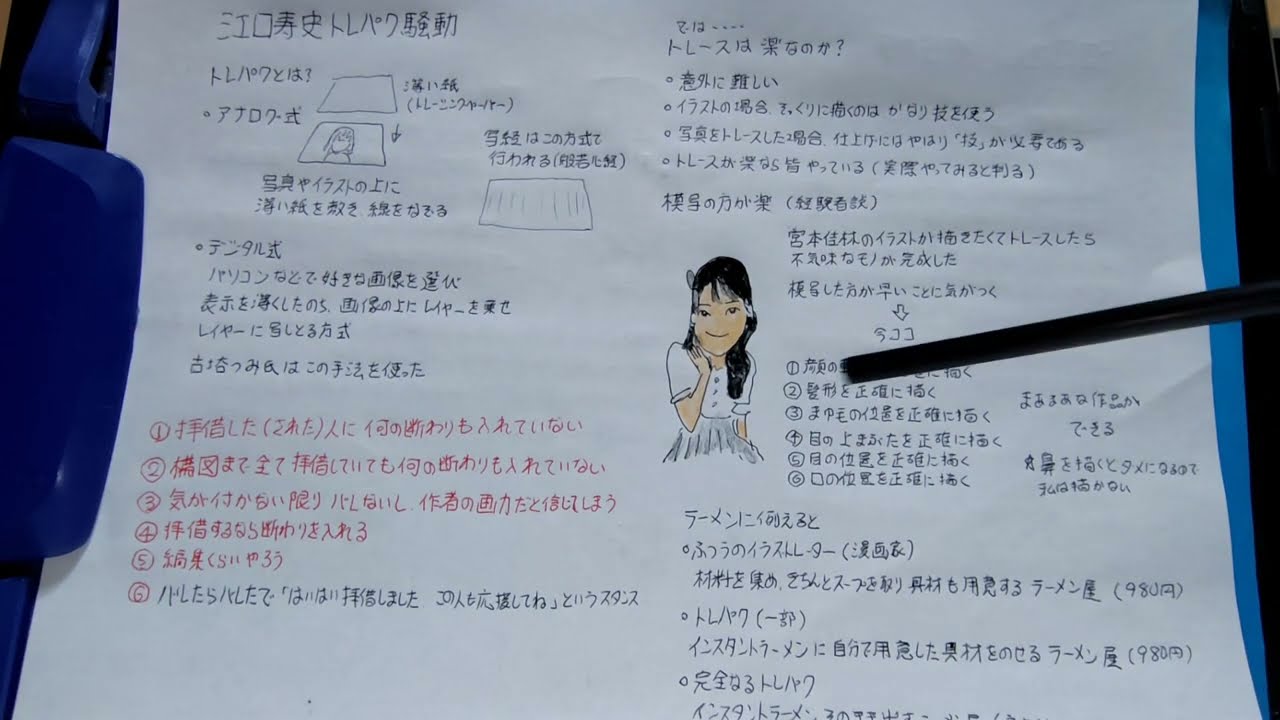 江口寿史トレパク騒動
トレパクとは?
薄い紙
(トレーシングペーパー)
。アナログ式
写経はこの方式で
行われる(般若心経)
写真やイラストの上に
薄い紙を敷き、線をなでる
。デジタル式
パソコンなどで好きな画像を選び
表示を薄くしたのち、画像の上にレイヤーを乗せ
レイヤーに写しとる方式
古塔つみ氏はこの手法を使った
①拝借した(された)人に何の断わりも入れていない
②構図まで全て拝借していても何の断わりも入れていない
③気が付かない限りバレないし、作者の画力だと信じてしまう
④拝借するなら断わりを入れる
⑤編集くらいやろう
⑥バレたらバレたで「はいはい拝借しました この人も応援してね」というスタンス
では‥‥
トレースは楽なのか?
。意外に難しい
。イラストの場合、そっくりに描くのはかなり技を使う
。写真をトレースした場合、仕上げにはやはり「技」が必要である
。トレースが楽なら皆やっている(実際やってみると判る)
模写の方が楽(経験者談)
宮本佳林のイラストが描きたくてトレースしたら
不気味なモノが完成した
模写した方が早いことに気がつく
⇩
今ココ
①顔の に描く
②髪形を正確に描く
③まゆ毛の位置を正確に描く
④目の上まぶたを正確に描く
⑤目の位置を正確に描く
⑥口の位置を正確に描く
まあまあな作品が
できる
☆鼻を描くとダメになるので
私は描かない
ラーメンに例えると
。ふつうのイラストレーター(漫画家)
材料を集め、きちんとスープを取り具材も用意するラーメン屋(980円)
。トレパク(一部)
インスタントラーメンに自分で用意した具材をのせるラーメン屋(980円)
。完全なるトレパク
インスタントラーメン